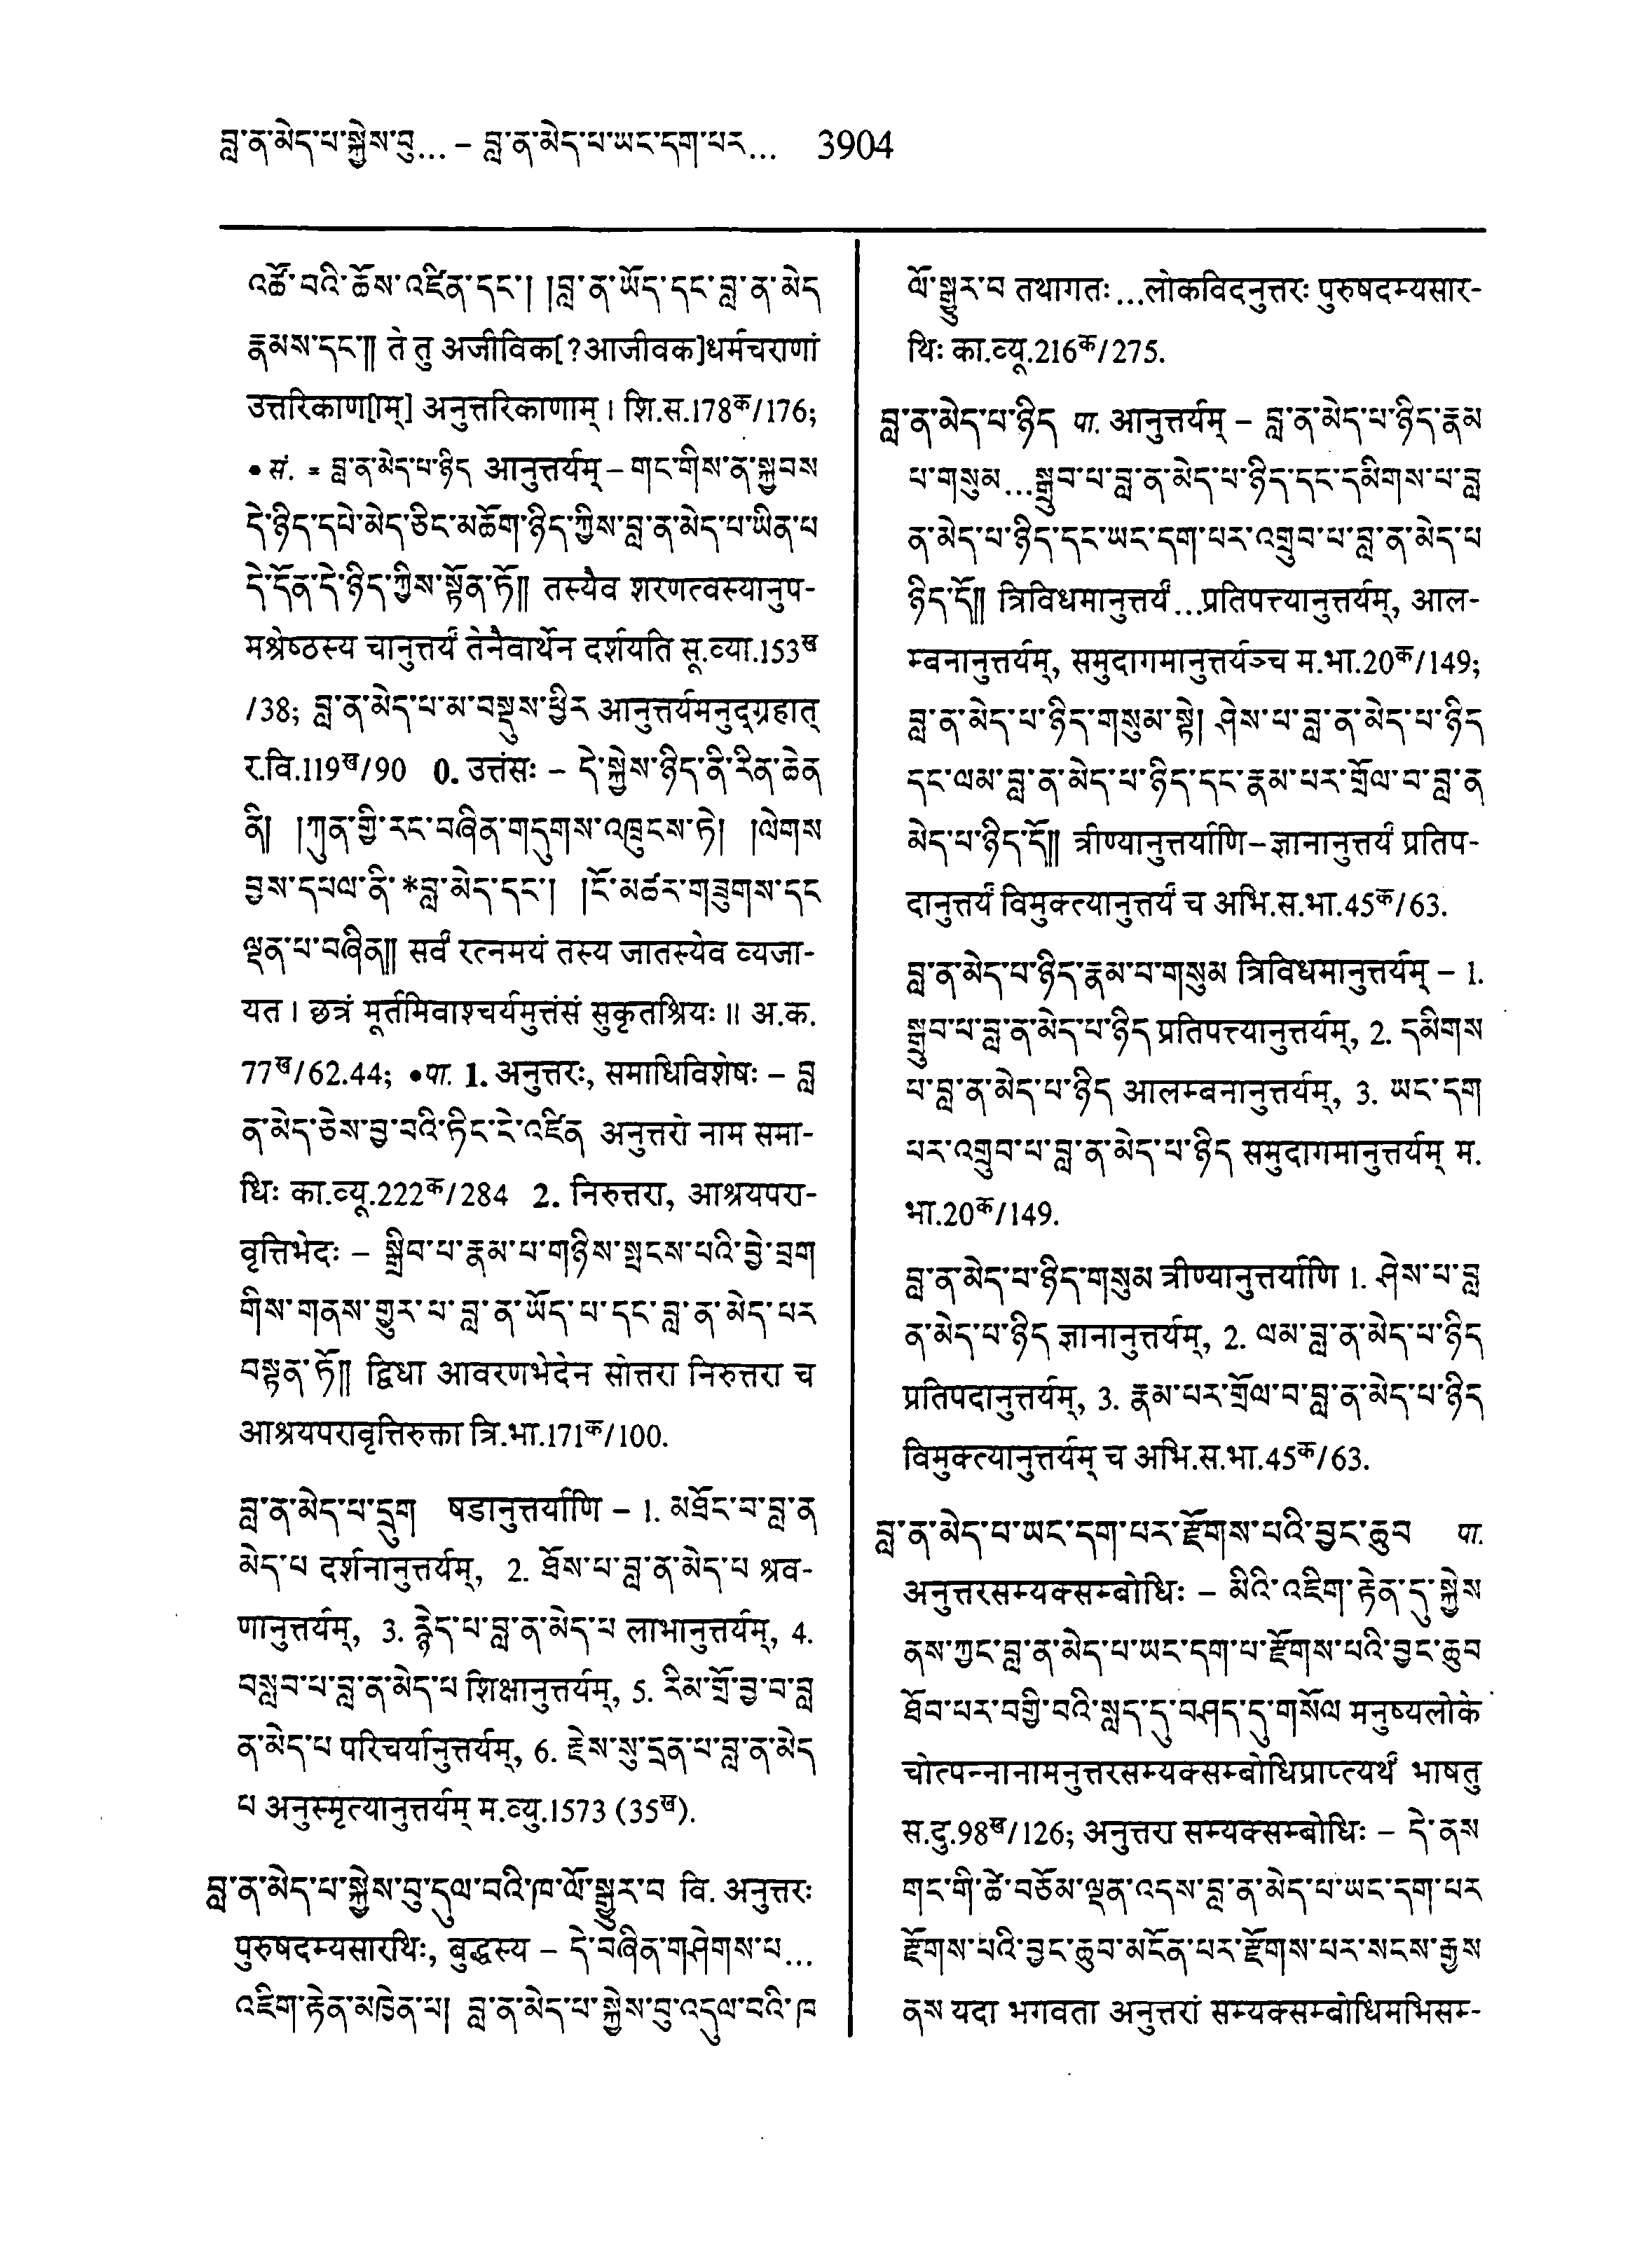 བླ་ན་མེད་པ་སྐྱེས་བུ... – བླ་ན་མེད་པ་ཡང་དག་པར... 3904
འཚོ་བའི་ཆོས་འཛིན་དང་། །བླ་ན་ཡོད་དང་བླ་ན་མེད
རྣམས་དང་།། ते तु अजीविक[?आजीवक]धर्मचराणां
उत्तरिकाण[ाम्] अनुत्तरिकाणाम् । शि.स.178क/176;
• सं. = བླ་ན་མེད་པ་ཉིད आनुत्तर्यम् – གང་གིས་ན་སྐྱབས
དེ་ཉིད་དཔེ་མེད་ཅིང་མཆོག་ཉིད་ཀྱིས་བླ་ན་མེད་པ་ཡིན་པ
དེ་དོན་དེ་ཉིད་ཀྱིས་སྟོན་ཏོ།། तस्यैव शरणत्वस्यानुप-
मश्रेष्ठस्य चानुत्तर्यं तेनैवार्थेन दर्शयति सू.व्या.153ख
/38; བླ་ན་མེད་པ་མ་བསྡུས་ཕྱིར आनुत्तर्यमनुद्ग्रहात्
र.वि.119ख/90 0. उत्तंसः – དེ་སྐྱེས་ཉིད་ནི་རིན་ཆེན
ནི། །ཀུན་གྱི་རང་བཞིན་གདུགས་འཁྲུངས་ཏེ། །ལེགས
བྱས་དཔལ་ནི་*བླ་མེད་དང་། །ངོ་མཚར་གཟུགས་དང
ལྡན་པ་བཞིན།། सर्वं रत्नमयं तस्य जातस्येव व्यजा-
यत । छत्रं मूर्तमिवाश्चर्यमुत्तंसं सुकृतश्रियः ॥ अ.क.
77ख/62.44; •पा. 1. अनुत्तरः, समाधिविशेषः – བླ
ན་མེད་ཅེས་བྱ་བའི་ཏིང་ངེ་འཛིན अनुत्तरो नाम समा-
धिः का.व्यू.222क/284 2. निरुत्तरा, आश्रयपरा-
वृत्तिभेदः – སྒྲིབ་པ་རྣམ་པ་གཉིས་སྤངས་པའི་བྱེ་བྲག
གིས་གནས་གྱུར་པ་བླ་ན་ཡོད་པ་དང་བླ་ན་མེད་པར
བསྟན་ཏོ།། द्विधा आवरणभेदेन सोत्तरा निरुत्तरा च
आश्रयपरावृत्तिरुक्ता त्रि.भा.171क/100.
བླ་ན་མེད་པ་དྲུག षडानुत्तर्याणि – 1. མཐོང་བ་བླ་ན
མེད་པ दर्शनानुत्तर्यम्, 2. ཐོས་པ་བླ་ན་མེད་པ श्रव-
णानुत्तर्यम्, 3. རྙེད་པ་བླ་ན་མེད་པ लाभानुत्तर्यम्, 4.
བསླབ་པ་བླ་ན་མེད་པ शिक्षानुत्तर्यम्, 5. རིམ་གྲོ་བྱ་བ་བླ
ན་མེད་པ परिचर्यानुत्तर्यम्, 6. རྗེས་སུ་དྲན་པ་བླ་ན་མེད
པ अनुस्मृत्यानुत्तर्यम् म.व्यु.1573 (35ख).
བླ་ན་མེད་པ་སྐྱེས་བུ་དུལ་བའི་ཁ་ལོ་སྒྱུར་བ वि. अनुत्तरः
पुरुषदम्यसारथिः, बुद्धस्य – དེ་བཞིན་གཤེགས་པ...
འཇིག་རྟེན་མཁྱེན་པ། བླ་ན་མེད་པ་སྐྱེས་བུ་འདུལ་བའི་ཁ
ལོ་སྒྱུར་བ तथागतः...लोकविदनुत्तरः पुरुषदम्यसार-
थिः का.व्यू.216क/275.
བླ་ན་མེད་པ་ཉིད पा. आनुत्तर्यम् – བླ་ན་མེད་པ་ཉིད་རྣམ
པ་གསུམ...སྒྲུབ་པ་བླ་ན་མེད་པ་ཉིད་དང་དམིགས་པ་བླ
ན་མེད་པ་ཉིད་དང་ཡང་དག་པར་འགྲུབ་པ་བླ་ན་མེད་པ
ཉིད་དོ།། त्रिविधमानुत्तर्यं...प्रतिपत्त्यानुत्तर्यम्, आल-
म्बनानुत्तर्यम्, समुदागमानुत्तर्यञ्च म.भा.20क/149;
བླ་ན་མེད་པ་ཉིད་གསུམ་སྟེ། ཤེས་པ་བླ་ན་མེད་པ་ཉིད
དང་ལམ་བླ་ན་མེད་པ་ཉིད་དང་རྣམ་པར་གྲོལ་བ་བླ་ན
མེད་པ་ཉིད་དོ།། त्रीण्यानुत्तर्याणि–ज्ञानानुत्तर्यं प्रतिप-
दानुत्तर्यं विमुक्त्यानुत्तर्यं च अभि.स.भा.45क/63.
བླ་ན་མེད་པ་ཉིད་རྣམ་པ་གསུམ त्रिविधमानुत्तर्यम् – 1.
སྒྲུབ་པ་བླ་ན་མེད་པ་ཉིད प्रतिपत्त्यानुत्तर्यम्, 2. དམིགས
པ་བླ་ན་མེད་པ་ཉིད आलम्बनानुत्तर्यम्, 3. ཡང་དག
པར་འགྲུབ་པ་བླ་ན་མེད་པ་ཉིད समुदागमानुत्तर्यम् म.
भा.20क/149.
བླ་ན་མེད་པ་ཉིད་གསུམ त्रीण्यानुत्तर्याणि 1. ཤེས་པ་བླ
ན་མེད་པ་ཉིད ज्ञानानुत्तर्यम्, 2. ལམ་བླ་ན་མེད་པ་ཉིད
प्रतिपदानुत्तर्यम्, 3. རྣམ་པར་གྲོལ་བ་བླ་ན་མེད་པ་ཉིད
विमुक्त्यानुत्तर्यम् च अभि.स.भा.45क/63.
བླ་ན་མེད་པ་ཡང་དག་པར་རྫོགས་པའི་བྱང་ཆུབ पा.
अनुत्तरसम्यक्सम्बोधिः – མིའི་འཇིག་རྟེན་དུ་སྐྱེས
ནས་ཀྱང་བླ་ན་མེད་པ་ཡང་དག་པ་རྫོགས་པའི་བྱང་ཆུབ
ཐོབ་པར་བགྱི་བའི་སླད་དུ་བཤད་དུ་གསོལ मनुष्यलोके
चोत्पन्नानामनुत्तरसम्यक्सम्बोधिप्राप्त्यर्थं भाषतु
स.दु.98ख/126; अनुत्तरा सम्यक्सम्बोधिः – དེ་ནས
གང་གི་ཚེ་བཅོམ་ལྡན་འདས་བླ་ན་མེད་པ་ཡང་དག་པར
རྫོགས་པའི་བྱང་ཆུབ་མངོན་པར་རྫོགས་པར་སངས་རྒྱས
ནས यदा भगवता अनुत्तरां सम्यक्सम्बोधिमभिसम-